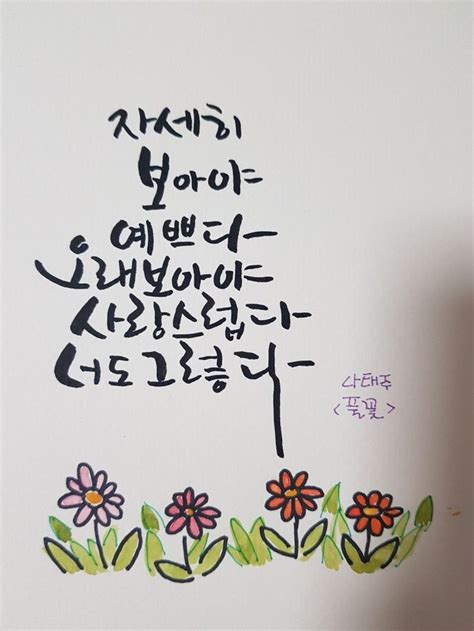 자세히
보아야
예쁘다
오래보아야
사랑스럽다
너도그렇다
나태주
<풀꽃>